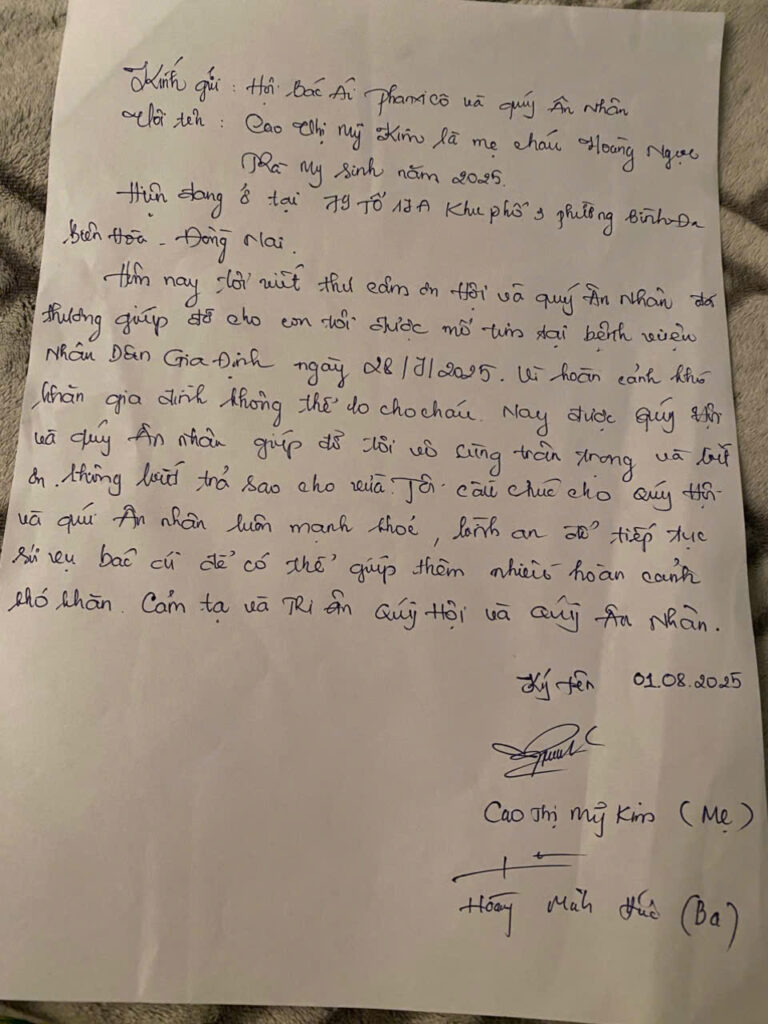 Kính gửi : Hội Bác Ái Phanxicô và quý Ân Nhân
Tôi tên : Cao Thị Mỹ Kim là mẹ cháu Hoàng Ngọc
Trà My sinh năm 2025.
Hiện đang ở tại 79 Tổ 17A Khu phố 3 phường Bình Đa
Biên Hòa - Đồng Nai.
Hôm nay tôi viết thư cảm ơn Hội và quý Ân Nhân đã
thương giúp đỡ cho con tôi được mổ tim tại bệnh viện
Nhân Dân Gia Định ngày 28/7/2025. Vì hoàn cảnh khó
khăn gia đình không thể lo cho cháu. Nay được quý Hội
và quý Ân nhân giúp đỡ tôi vô cùng trân trọng và biết
ơn. không biết trả sao cho vừa. Tôi cầu chúc cho Quý Hội
và quí Ân nhân luôn mạnh khoẻ, bình an để tiếp tục
sứ vụ bác ái để có thể giúp thêm nhiều hoàn cảnh
khó khăn. Cảm tạ và Tri Ân Quý Hội và Quý Ân Nhân.
Ký tên 01.08.2025
Cao Thị Mỹ Kim (Mẹ)
Hoàng (Ba)